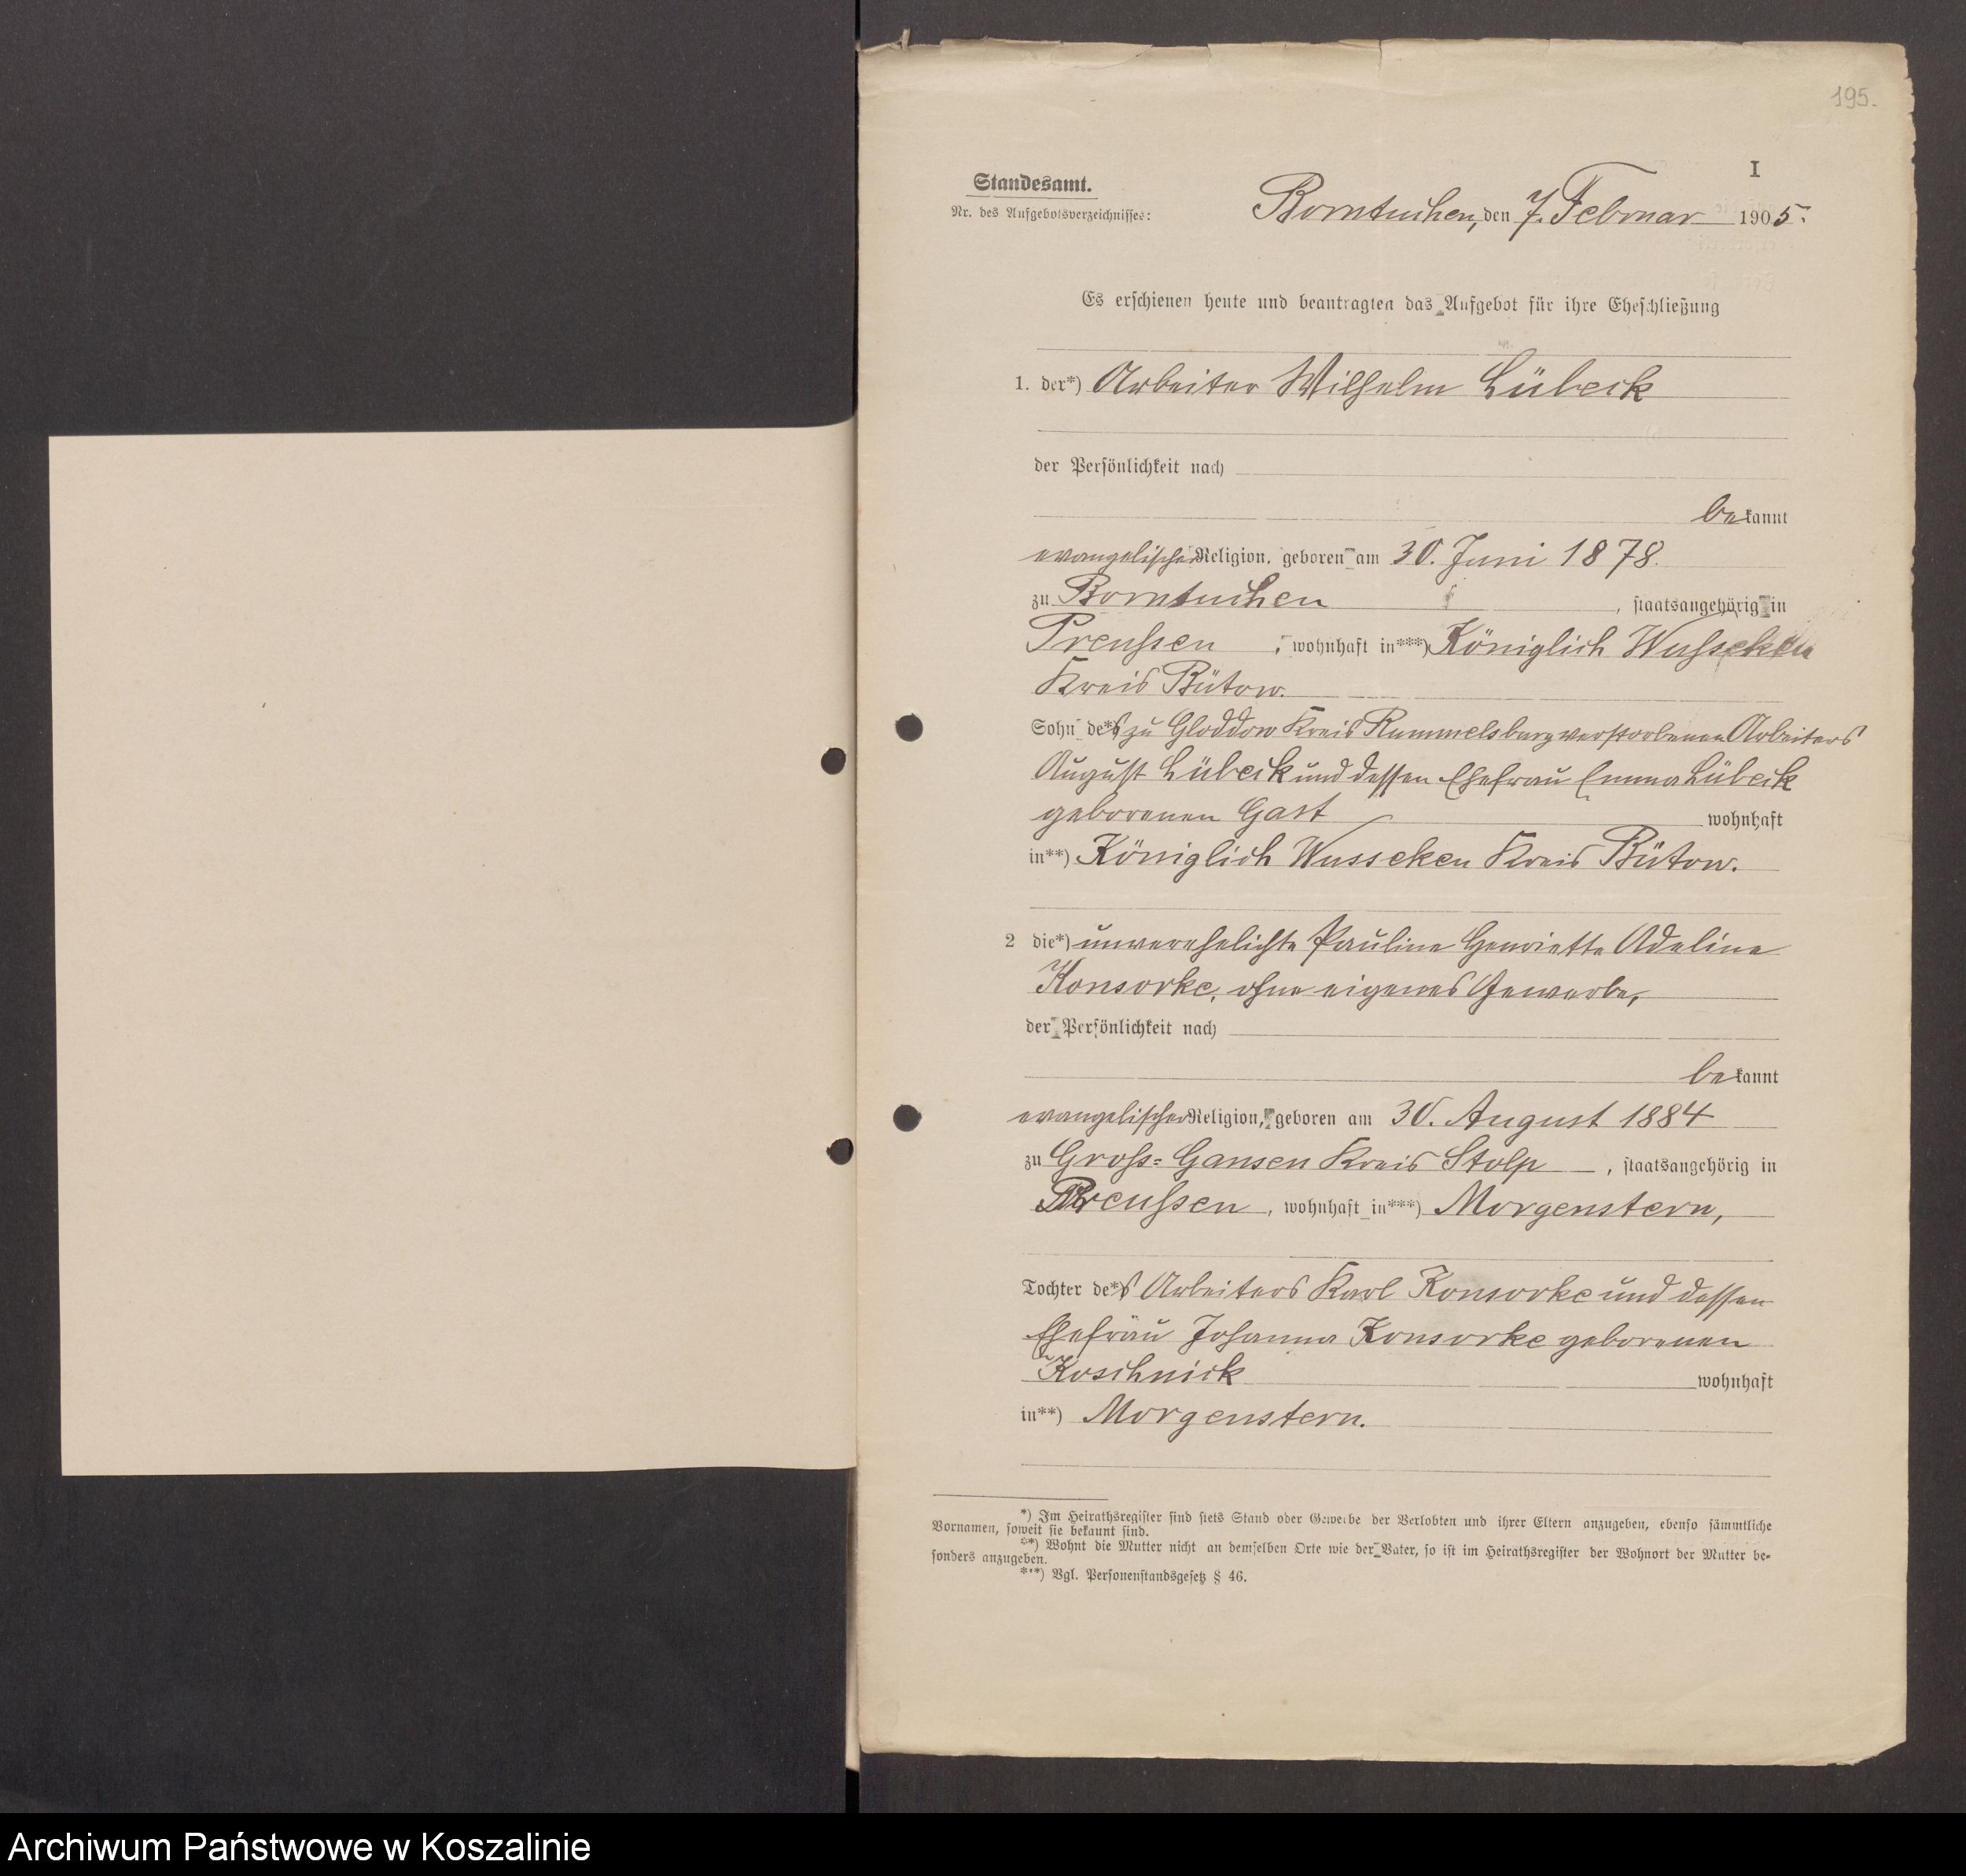 195.
I
Standesamt.
Nr. des Aufgebotsverzeichnisses:
Borntuchen, den 7. Februar 1905.
Es erschienen heute und beantragten das Aufgebot für ihre Eheschließung
1. der*) Arbeiter Wilhelm Lübeck
der Persönlichkeit nach
bekannt
evangelischer Religion, geboren am 30. Juni 1878.
zu Borntuchen, staatsangehörig in
Preußen, wohnhaft in***) Königlich Wußseken
Kreis Bütow.
Sohn des*) zu Gloddow Kreis Rummelsburg verstorbenen Arbeiters
August Lübeck und dessen Ehefrau Emma Lübeck
geborenen Gast wohnhaft
in**) Königlich Wusseken Kreis Bütow.
2 die*) unverehelichte Pauline Henriette Adeline
Konsorke, ohne eigenes Gewerbe,
der Persönlichkeit nach
bekannt
evangelischer Religion, geboren am 30. August 1884
zu Groß=Gansen Kreis Stolp, staatsangehörig in
Preußen, wohnhaft in***) Morgenstern,
Tochter des*) Arbeiters Karl Konsorke und dessen
Ehefrau Johanna Konsorke geborenen
Koschnick wohnhaft
in**) Morgenstern.
*) Im Heirathsregister sind stets Stand oder Gewerbe der Verlobten und ihrer Eltern anzugeben, ebenso sämmtliche
Vornamen, soweit sie bekannt sind.
**) Wohnt die Mutter nicht an demselben Orte wie der Vater, so ist im Heirathsregister der Wohnort der Mutter be-
sonders anzugeben.
***) Vgl. Personenstandsgesetz § 46.
Archiwum Państwowe w Koszalinie